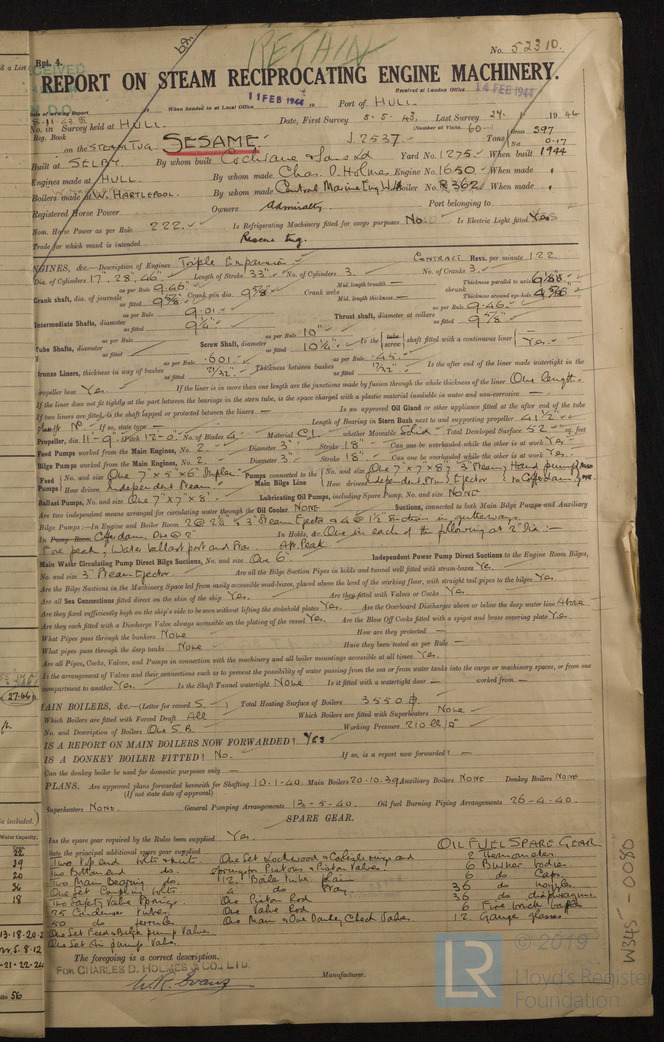 Rpt. 4.
RETAIN
No. 52310.
REPORT ON STEAM RECIPROCATING ENGINE MACHINERY.
Received at London Office 14 FEB 1944
Date of writing Report When handed in at Local Office 11 FEB 1944 Port of HULL.
No. in Survey held at HULL. Date, First Survey 5.5.43. Last Survey 24. 1944
Reg. Book (Number of Visits 60
on the STEAM TUG. SESAME J.2537 Tons Gross 597 Net 0.17
Built at SELBY. By whom built Cochrane & Sons Ld Yard No. 1275 When built 1944
Engines made at HULL. By whom made Chas. D. Holmes Engine No. 1650 When made
Boilers made at W. HARTLEPOOL. By whom made Central Marine Eng. Wks Boiler No. B362 When made
Registered Horse Power Owners Admiralty Port belonging to
Nom. Horse Power as per Rule 222. Is Refrigerating Machinery fitted for cargo purposes No. Is Electric Light fitted Yes
Trade for which vessel is intended Rescue tug.
ENGINES, &c.—Description of Engines Triple Expansion CONTRACT Revs. per minute 122
Dia. of Cylinders 17". 28". 46" Length of Stroke 33" No. of Cylinders 3. No. of Cranks 3.
Crank shaft, dia. of journals as per Rule 9.46 as fitted 9⅝ Crank pin dia. 9⅝ Crank webs Mid. length breadth — Mid. length thickness — shrunk Thickness parallel to axis Thickness around eye-hole
Intermediate Shafts, diameter as per Rule 9.01 as fitted 9¼" Thrust shaft, diameter at collars as per Rule 9.46 as fitted 9⅝"
Tube Shafts, diameter as per Rule as fitted Screw Shaft, diameter as per Rule 10" as fitted 10¼" Is the tube screw shaft fitted with a continuous liner Yes.
Bronze Liners, thickness in way of bushes as per Rule .601 as fitted 21/32" Thickness between bushes as per Rule .45 as fitted 17/32" Is the after end of the liner made watertight in the
propeller boss Yes. If the liner is in more than one length are the junctions made by fusion through the whole thickness of the liner One length.
If the liner does not fit tightly at the part between the bearings in the stern tube, is the space charged with a plastic material insoluble in water and non-corrosive —
If two liners are fitted, is the shaft lapped or protected between the liners — Is an approved Oil Gland or other appliance fitted at the after end of the tube
shaft No. If so, state type — Length of Bearing in Stern Bush next to and supporting propeller 41½"
Propeller, dia. 11-9" Pitch 12-0" No. of Blades 4 Material C.I. whether Moveable Solid Total Developed Surface 52 sq. feet
Feed Pumps worked from the Main Engines, No. 2. Diameter 3" Stroke 18" Can one be overhauled while the other is at work Yes.
Bilge Pumps worked from the Main Engines, No. 2. Diameter 3" Stroke 18" Can one be overhauled while the other is at work Yes.
Feed Pumps No. and size One 7" x 5" x 6" Duplex How driven Independent Steam Pumps connected to the Main Bilge Line No. and size One 7" x 7" x 8" 3" Steam Hand pump How driven Independent Stm Ejector to Cofferdam
Ballast Pumps, No. and size One 7" x 7" x 8" Lubricating Oil Pumps, including Spare Pump, No. and size NONE
Are two independent means arranged for circulating water through the Oil Cooler NONE Suctions, connected to both Main Bilge Pumps and Auxiliary
Bilge Pumps:—In Engine and Boiler Room 2 @ 2½" & 3" Steam Ejector & 4 @ 1½" Suction in gutterways.
In Pump Room Cofferdam. One @ 2" In Holds, &c. One in each of the following at 2" Dia:—
Fore peak, Water ballast port and Stbd. Aft Peak
Main Water Circulating Pump Direct Bilge Suctions, No. and size One 6" Independent Power Pump Direct Suctions to the Engine Room Bilges,
No. and size 3" Steam Ejector Are all the Bilge Suction Pipes in holds and tunnel well fitted with strum-boxes Yes.
Are the Bilge Suctions in the Machinery Space led from easily accessible mud-boxes, placed above the level of the working floor, with straight tail pipes to the bilges Yes.
Are all Sea Connections fitted direct on the skin of the ship Yes. Are they fitted with Valves or Cocks Yes.
Are they fixed sufficiently high on the ship's side to be seen without lifting the stokehold plates Yes. Are the Overboard Discharges above or below the deep water line Above
Are they each fitted with a Discharge Valve always accessible on the plating of the vessel Yes. Are the Blow Off Cocks fitted with a spigot and brass covering plate Yes.
What Pipes pass through the bunkers None How are they protected —
What pipes pass through the deep tanks None Have they been tested as per Rule —
Are all Pipes, Cocks, Valves, and Pumps in connection with the machinery and all boiler mountings accessible at all times Yes.
Is the arrangement of valves and their connections such as to prevent the possibility of water passing from the sea or from water tanks into the cargo or machinery spaces, or from one
compartment to another Yes. Is the Shaft Tunnel watertight None Is it fitted with a watertight door — worked from —
MAIN BOILERS, &c.—(Letter for record S ) Total Heating Surface of Boilers 3550
Which Boilers are fitted with Forced Draft All Which Boilers are fitted with Superheaters None
No. and Description of Boilers One S.B. Working Pressure 210 lb/□"
IS A REPORT ON MAIN BOILERS NOW FORWARDED? Yes
IS A DONKEY BOILER FITTED? No. If so, is a report now forwarded? —
Can the donkey boiler be used for domestic purposes only —
PLANS. Are approved plans forwarded herewith for Shafting 10-1-40. Main Boilers 20-10-39. Auxiliary Boilers NONE Donkey Boilers None
(If not state date of approval)
Superheaters NONE. General Pumping Arrangements 13-5-40. Oil fuel Burning Piping Arrangements 26-4-40.
SPARE GEAR.
Has the spare gear required by the Rules been supplied Yes.
State the principal additional spare gear supplied
OIL FUEL SPARE GEAR
Two top end bolts & nuts. One Set Lockwood & Carlisle rings and 2 Thermometers.
Two Bottom end do. Springs for Pistons & Piston Valves. 6 Burner bodies
Two Main bearing do. 12 Boiler tubes plain 6 do Caps.
One set Coupling bolts 4 do Stay. 36 do nozzles
Two Safety Valve Springs. One Piston Rod 36 do diaphragms.
25 Condenser tubes. One Valve Rod 6 Fire brick baffles
50 do ferrules One Main & One Donkey Check Valve. 12 Gauge glasses.
One Set Feed & Bilge pump Valves.
One Set Air pump Valves.
The foregoing is a correct description.
FOR CHARLES D. HOLMES & CO., LTD.
Manufacturer.
W345-0080
© 2019
LR
Lloyd's Register
Foundation
Water Capacity.
22
29
20
36
18